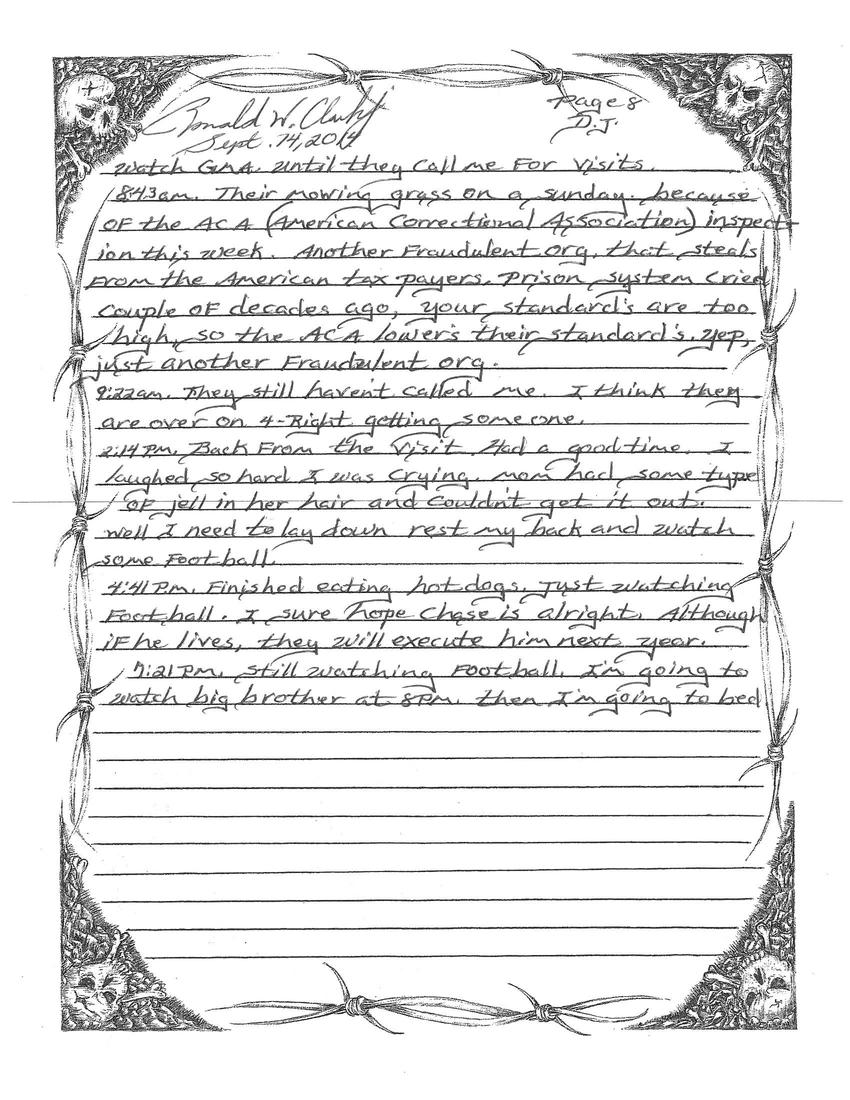 Ronald W. Clark Jr.
Page 8
Sept. 14, 2014
D.J.
watch GMA. until they call me For visits.
8:43am. Their mowing grass on a sunday. because
OF the ACA (American Correctional Association) inspect-
ion this week. Another Fraudulent org. that steals
From the American tax payers. Prison system cried
couple OF decades ago, your standard's are too
high, so the ACA lower's their standard's. Yep,
just another Fraudulent org.
9:22am. They still haven't called me. I think they
are over on 4-Right getting someone.
2:14 PM. Back From the visit. Had a good time. I
laughed so hard I was crying. mom had some type
OF jell in her hair and couldn't get it out.
well I need to lay down rest my back and watch
some Football.
4:41 P.m. Finished eating hot dogs. Just watching
Football. I sure hope Chase is alright. Although
iF he lives, they will execute him next year.
7:21 PM. still watching Football. I'm going to
watch big brother at 8PM. then I'm going to bed